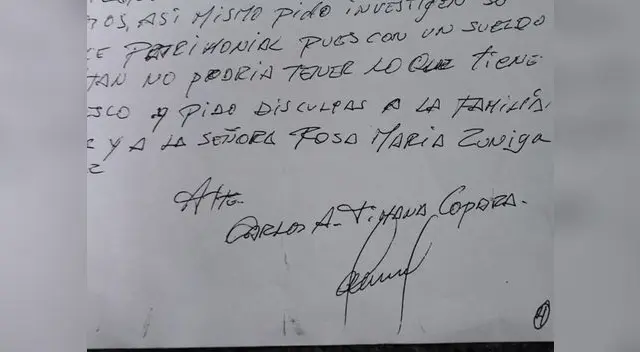 OS, ASÍ MISMO PIDO INVESTIGEN SU
CE PATRIMONIAL PUES CON UN SUELDO
TAN NO PODRIA TENER LO QUE TIENE
ESCO Y PIDO DISCULPAS A LA FAMILIA
Y A LA SEÑORA ROSA MARIA ZUNIGA
Atte.
CARLOS A. TIMANA COPARA.
4